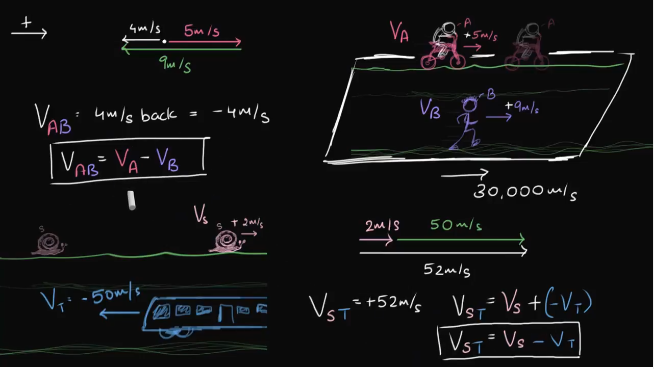 +
4m/s 5m/s
9m/s
V_AB = 4m/s back = -4m/s
V_AB = V_A - V_B
V_A
A
+5m/s
A
V_B
B
+9m/s
30,000m/s
S
V_S
S
+2m/s
V_T = -50m/s
2m/s 50m/s
52m/s
V_ST = +52m/s
V_ST = V_S + (-V_T)
V_ST = V_S - V_T